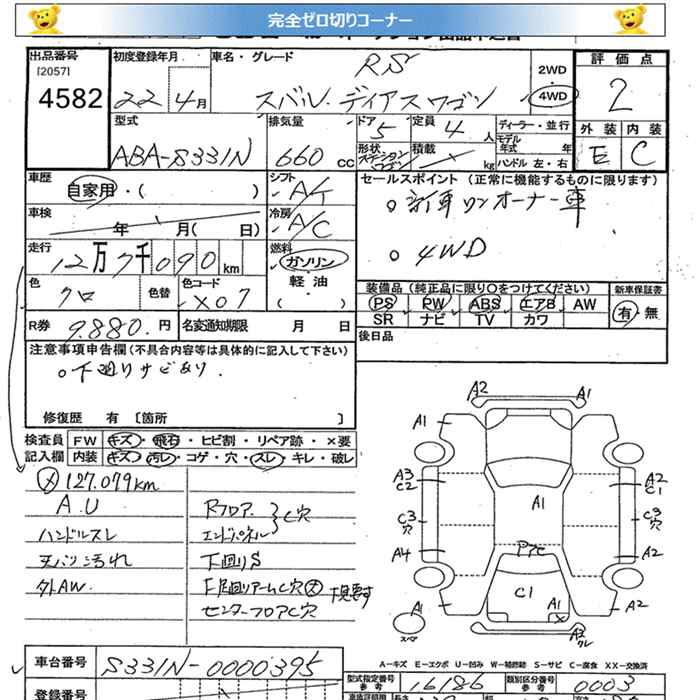 完全ゼロ切りコーナー
出品番号 初度登録年月 車名・グレード RS 2WD 評価点
[2057]
4582 22年4月 スバル ディアスワゴン 4WD 2
型式 排気量 ドア 定員 ディーラー・並行 外装 内装
ABA-S331N 660cc 5 4人 モデル年式 年 E C
形状 ステーションワゴン 積載 kg ハンドル 左・右
車歴 シフト セールスポイント (正常に機能するものに限ります)
自家用・( ) A/T ○新車ワンオーナー車
車検 年 月( 日) 冷房 A/C
走行 燃料 ○4WD
12万7千090km ガソリン
色 色替 色コード 軽油 装備品 (純正品に限り○をつけてください) 新車保証書
クロ X07 ( ) PS PW ABS エアB AW 有・無
R券 9.880.円 名変通知期限 月 日 SR ナビ TV カワ
注意事項申告欄(不具合内容等は具体的に記入して下さい) 後日品
○下廻りサビあり.
修復歴 有 〔箇所 〕
検査員 FW キズ・飛石・ヒビ割・リペア跡・×要
記入欄 内装 キズ・汚レ・コゲ・穴・スレ・キレ・破レ
メ 127.079km
A.U Rフロア.
ハンドルスレ エンドパネル C穴
天バリ汚れ 下廻りS
外AW. F足廻りアームC穴大 下見要す
センターフロアC穴
A2 A1
A1
A3 A2
C2 C1
A1
C3 C3
穴 穴
A4 P7C A2
C1
A1 A1 A2
スペア A3
ワレ
A-キズ E-エクボ U-凹み W-補修跡 S-サビ C-腐食 X-要交換 XX-交換済
車台番号 S331N-0000395 型式指定番号 参考 16186 類別区分番号 参考 0003
登録番号